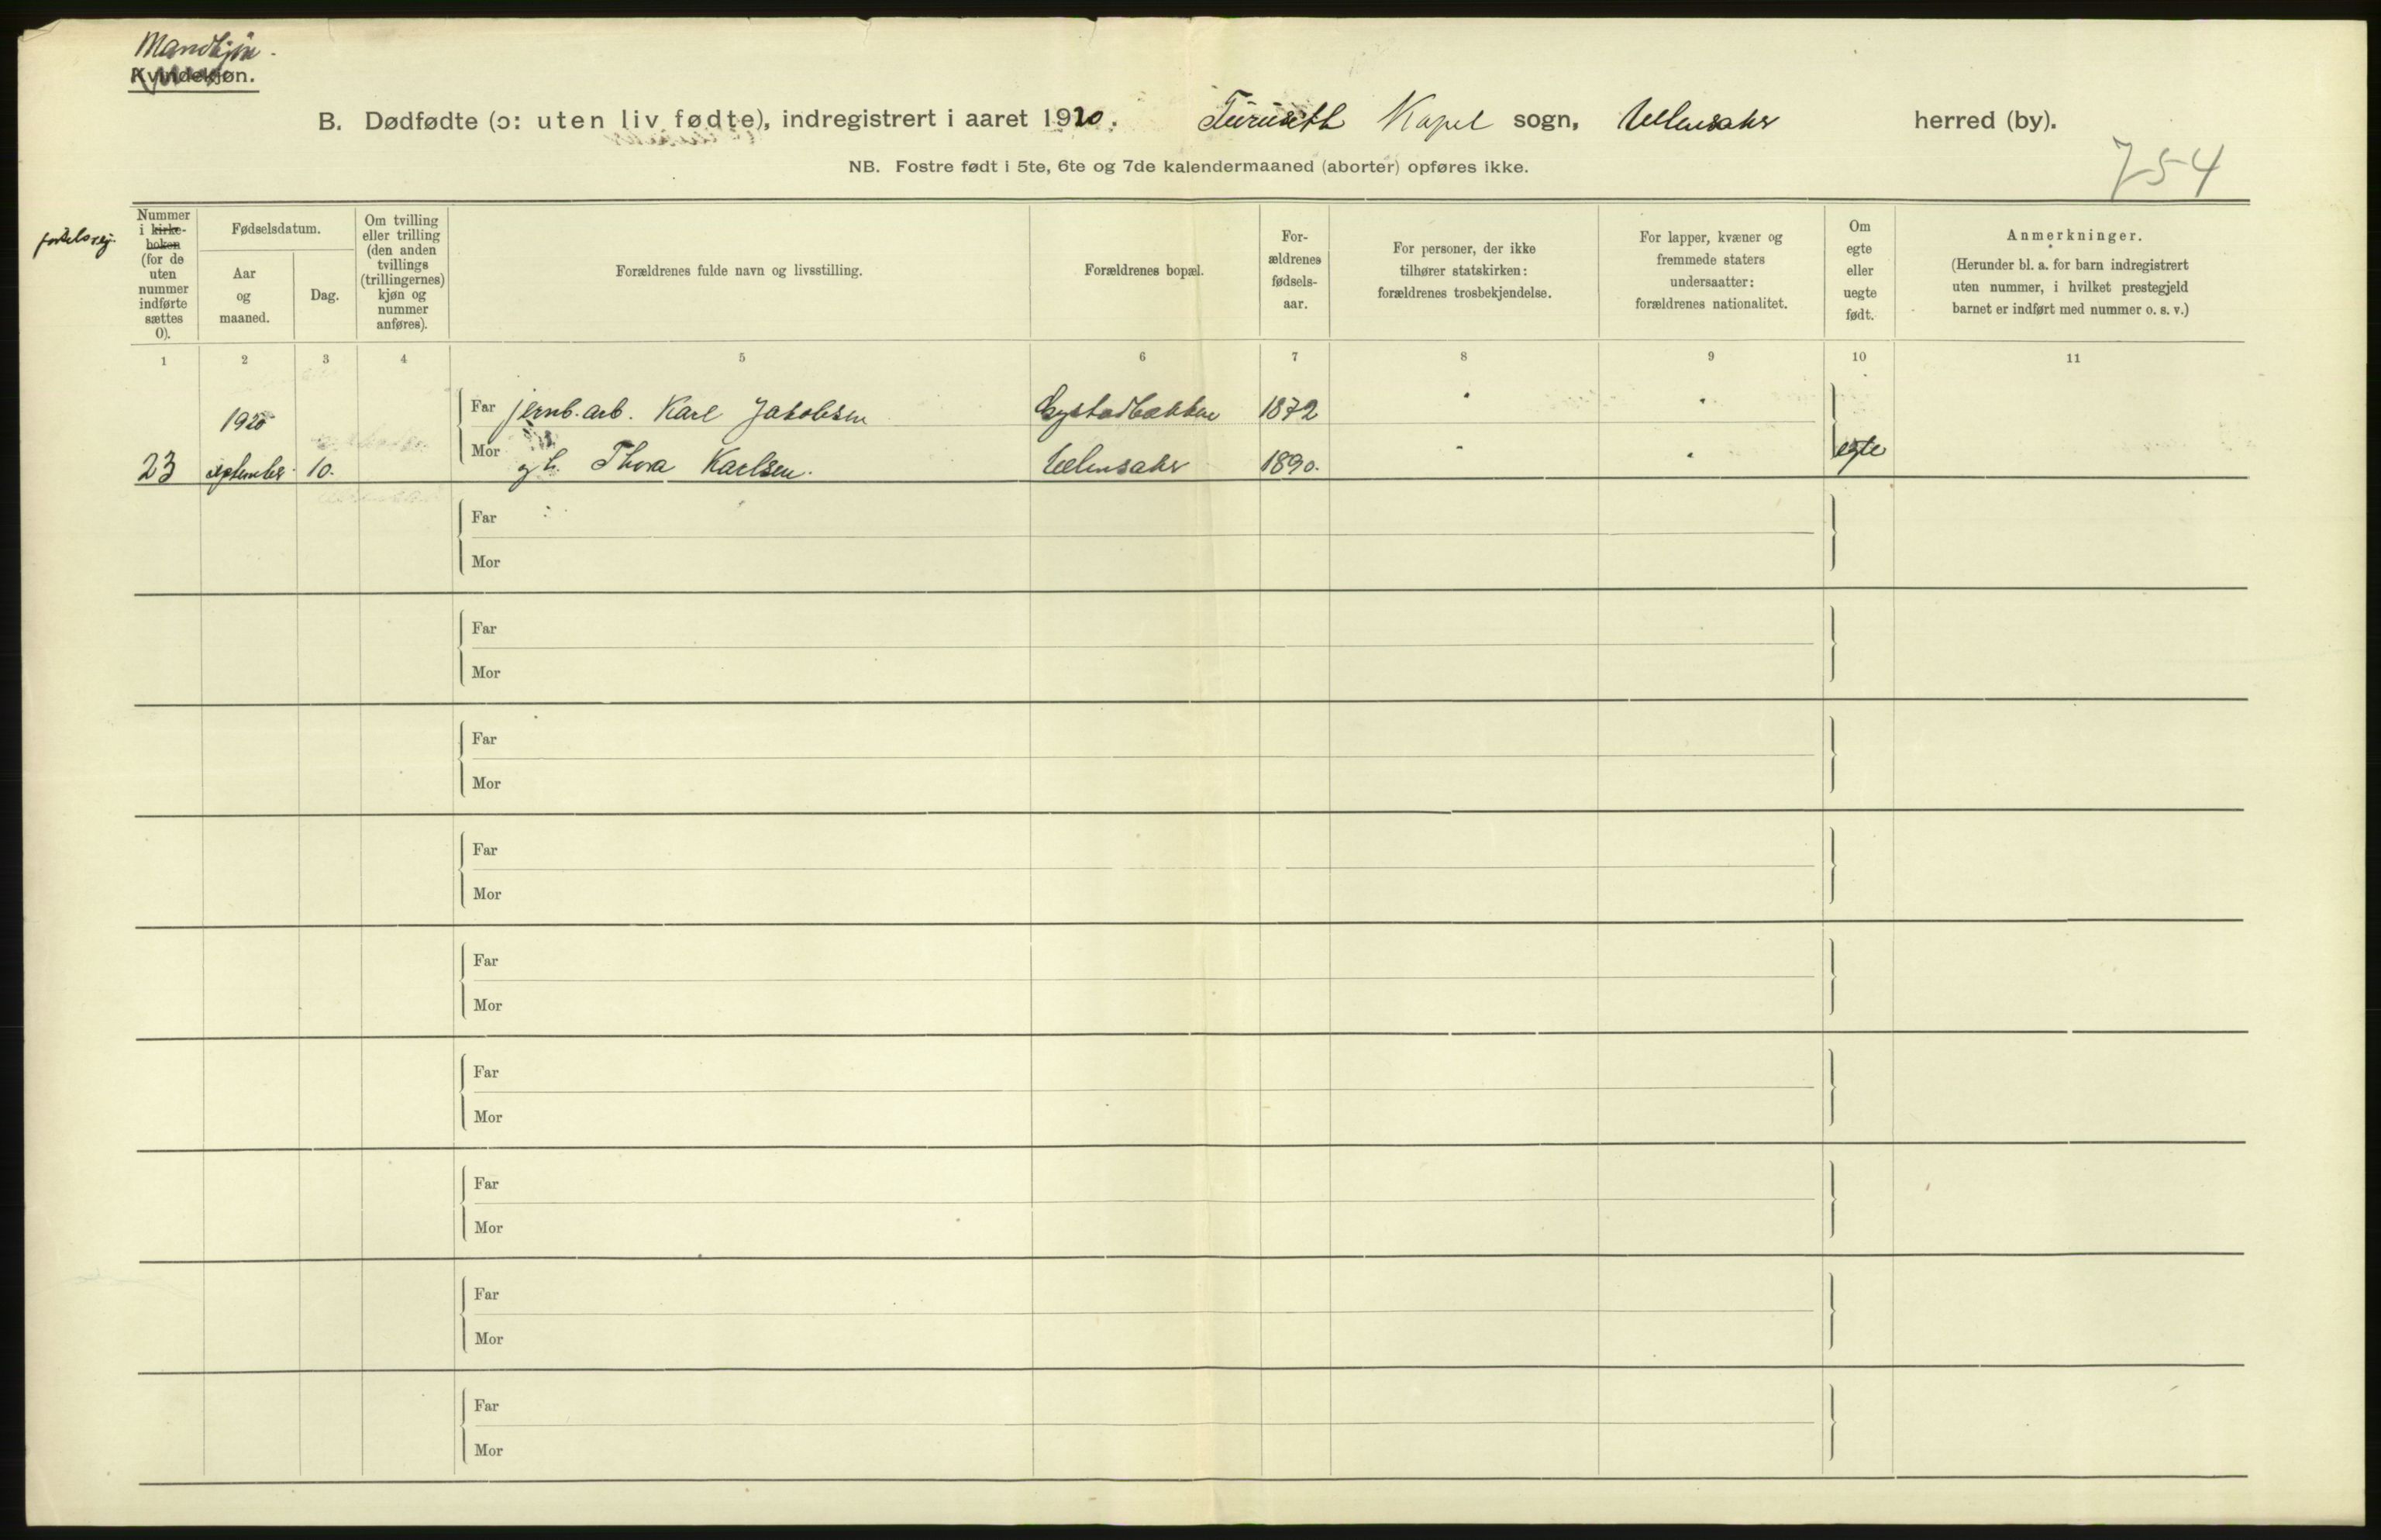 Mandkjøn.
Kvindekjøn.
B. Dødfødte (ɔ: uten liv fødte), indregistrert i aaret 1920. Furuseth Kapel sogn, Ullensaker herred (by).
NB. Fostre født i 5te, 6te og 7de kalendermaaned (aborter) opføres ikke.
754
Nummer i kirke-boken (for de uten nummer indførte sættes 0).
Fødselsdatum.
Aar og maaned.
Dag.
Om tvilling eller trilling (den anden tvillings (trillingernes) kjøn og nummer anføres).
Forældrenes fulde navn og livsstilling.
Forældrenes bopæl.
For-ældrenes fødsels-aar.
For personer, der ikke tilhører statskirken: forældrenes trosbekjendelse.
For lapper, kvæner og fremmede staters undersaatter: forældrenes nationalitet.
Om egte eller uegte født.
Anmerkninger.
(Herunder bl. a. for barn indregistrert uten nummer, i hvilket prestegjeld barnet er indført med nummer o. s. v.)
1 2 3 4 5 6 7 8 9 10 11
1920 Far jernb. arb. Karl Jakobsen Gystadbakken 1872
23 september 10. Mor Thora Karlsen. Ullensaker 1890. egte
Far
Mor
Far
Mor
Far
Mor
Far
Mor
Far
Mor
Far
Mor
Far
Mor
Far
Mor
Far
Mor